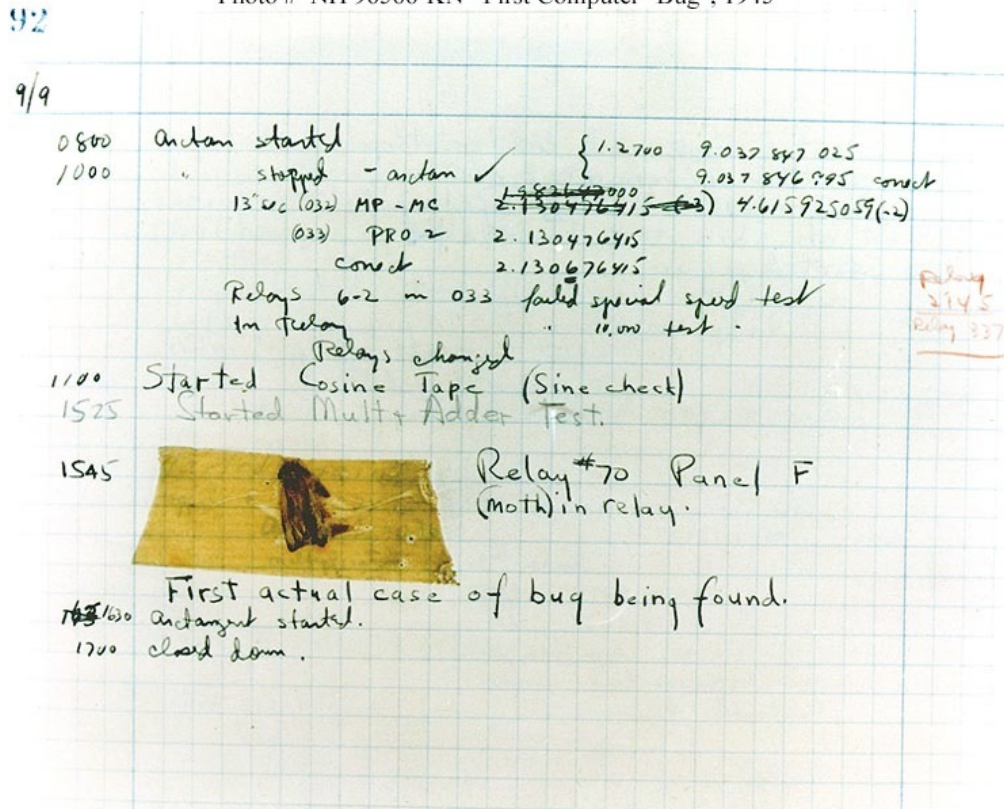 Photo # NH 96566-KN "First Computer "Bug", 1945
92
9/9
0800 arctan started { 1.2700 9.037 847 025
1000 " stopped - arctan ✓ 9.037 846 995 conect
13" uc (032) MP - MC 1.982647000 2.130476415 (-3) 4.615925059(-2)
(033) PRO 2 2.130476415
conect 2.130676415
Relays 6-2 in 033 failed special speed test
In Relay " 10,000 test .
Relay
2145
Relay 337
Relays changed
1100 Started Cosine Tape (Sine check)
1525 Started Mult + Adder Test.
1545 Relay #70 Panel F
(moth) in relay.
First actual case of bug being found.
1630 arctangent started.
1700 closed down .